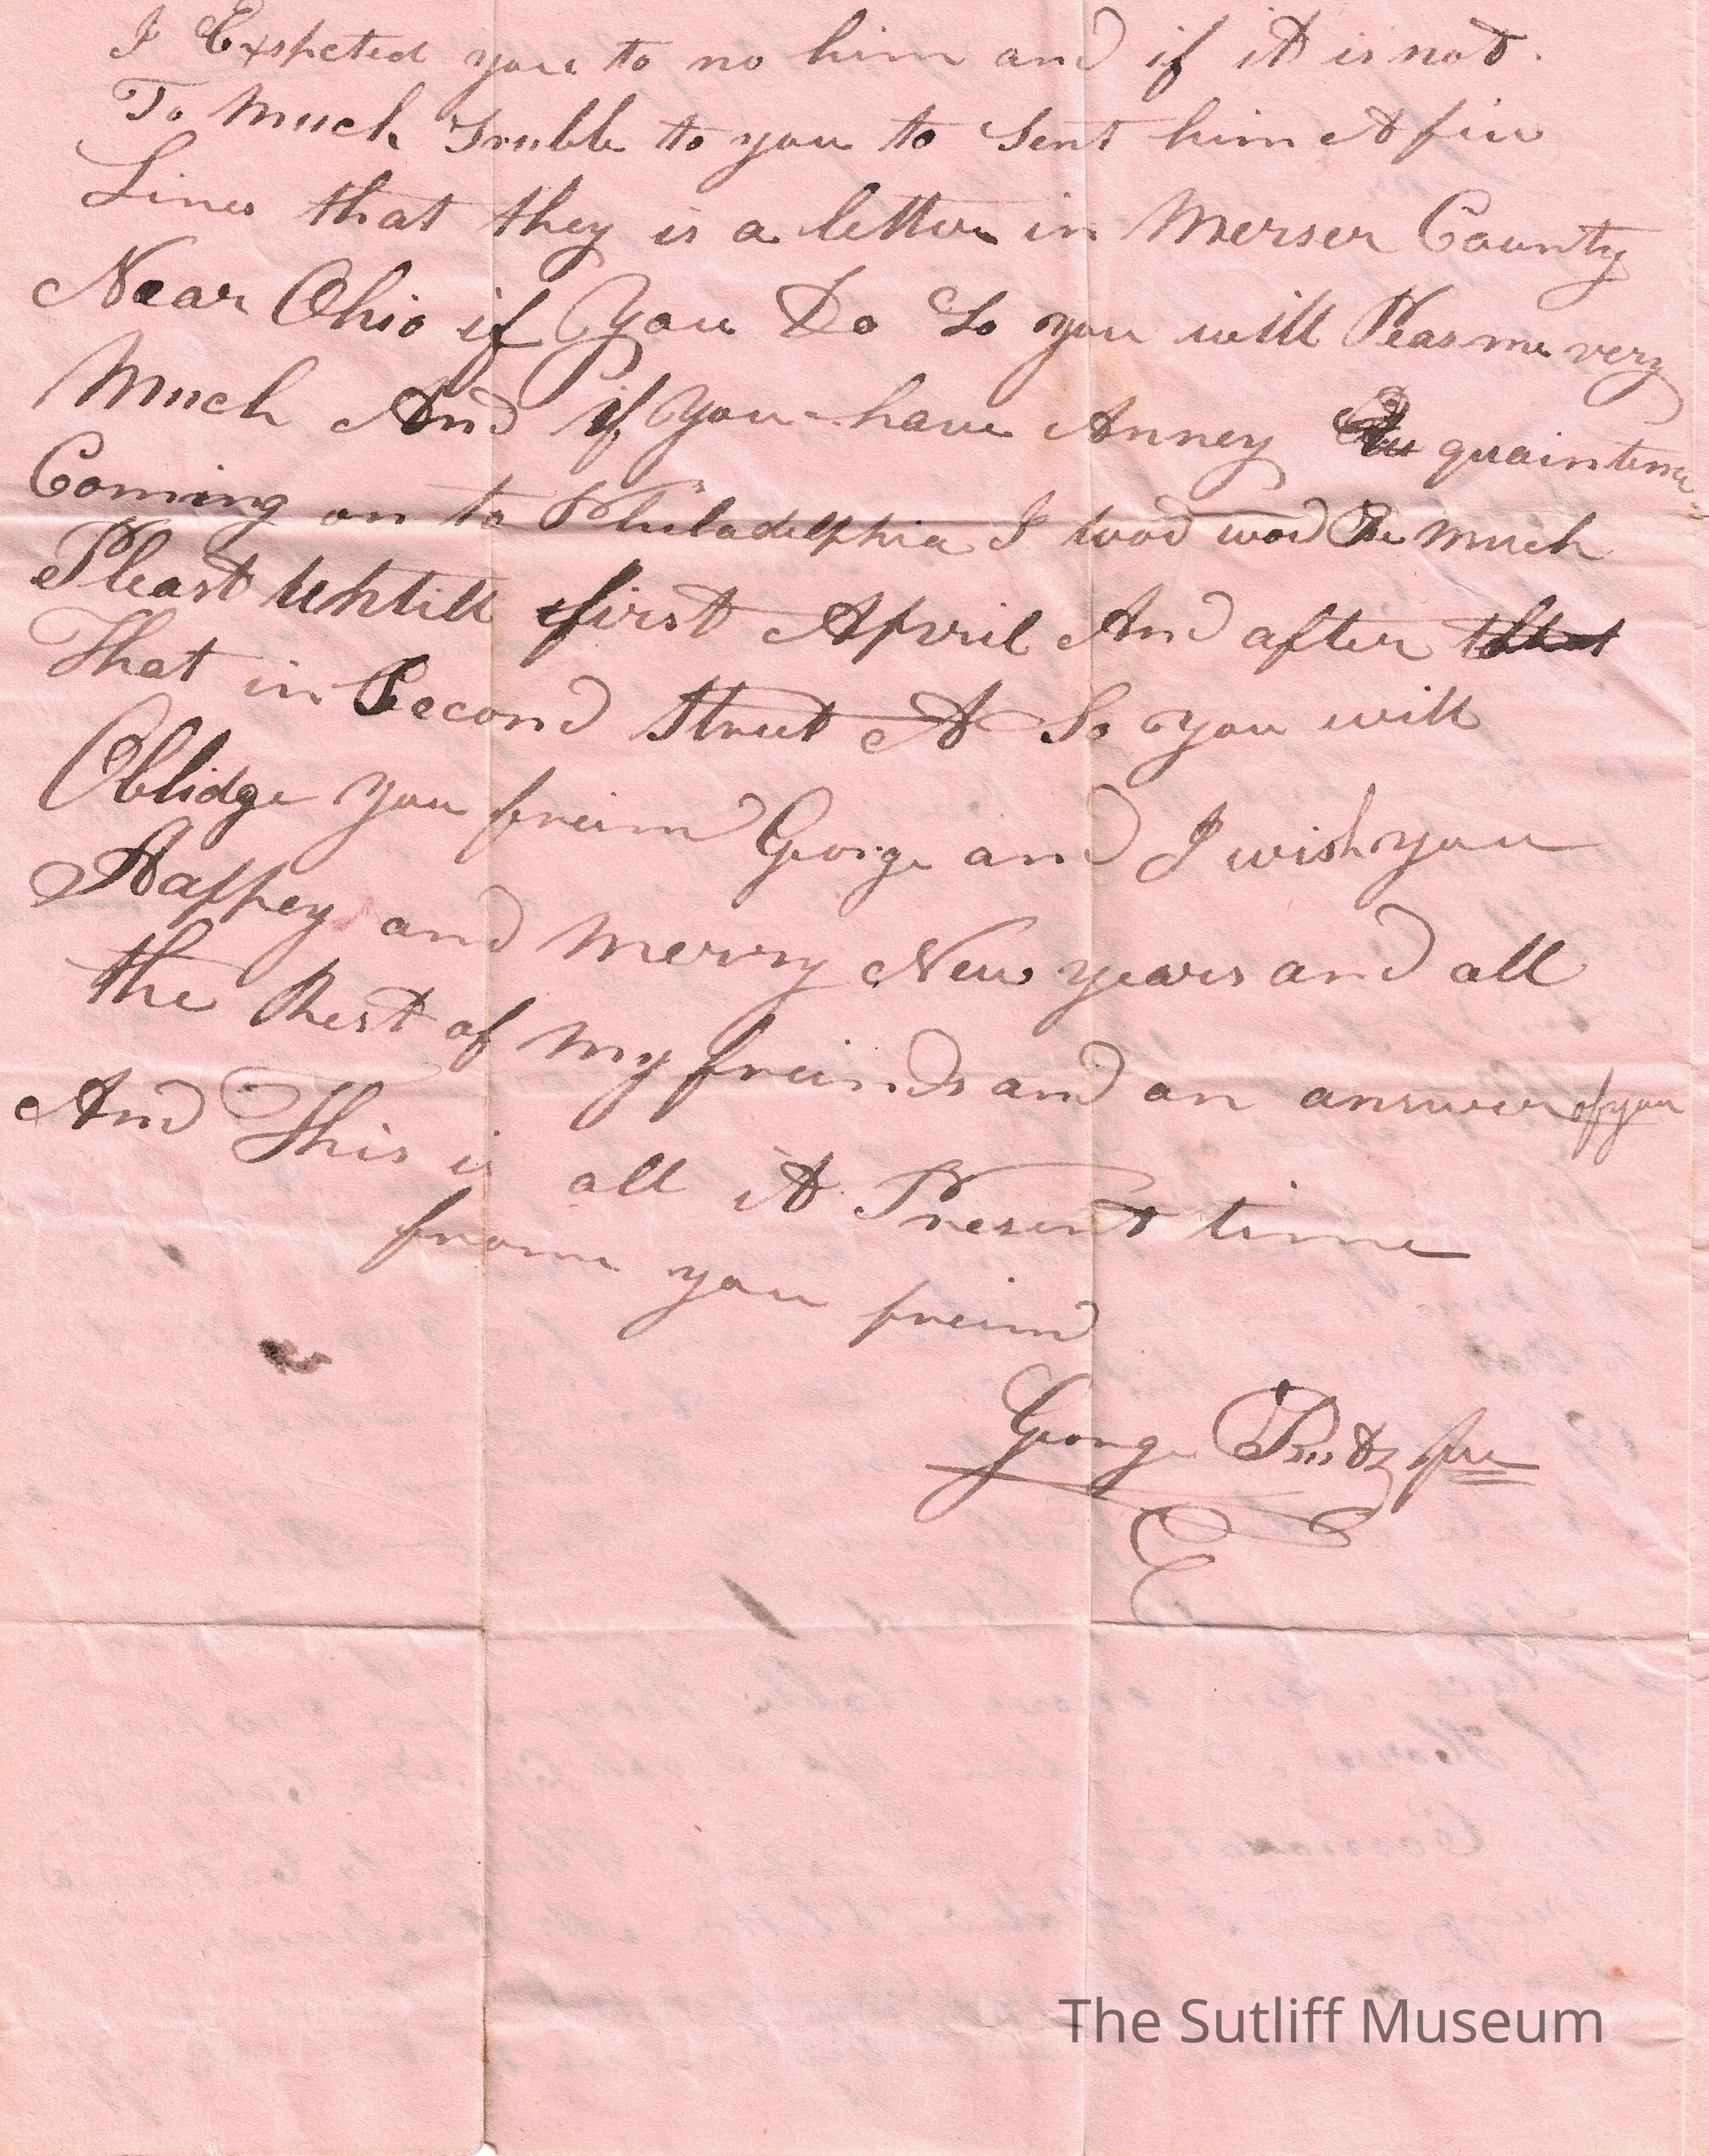 I Expected you to no him and if it is not.
To Much Truble to you to Sent him A fiw
Lines that they is a letter in Merser County
Near Ohio if you Do So you will Pleas me very
Much And if you have Anney quaintence
Coming on to Philadelphia I wod wod Be much
Pleast Untill first April And after that
That in Second Street A So you will
Oblidge you freind George and I wish you
Happey and Merry New years and all
the Rest of my freinds and an answer of you
And This is all it Present time
from you freind
George
The Sutliff Museum